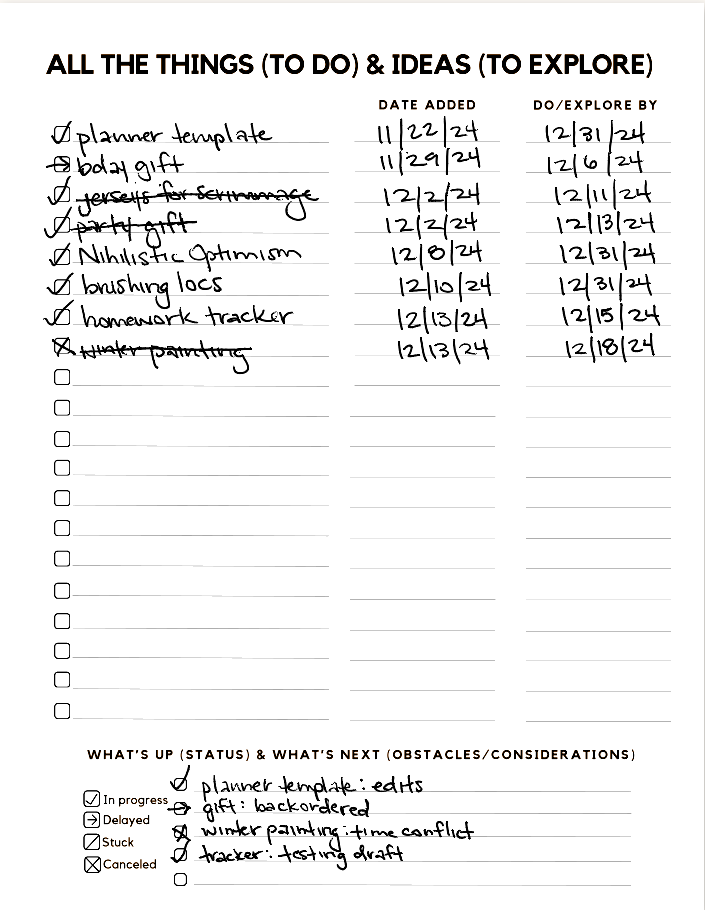 ALL THE THINGS (TO DO) & IDEAS (TO EXPLORE)
DATE ADDED DO/EXPLORE BY
planner template 11/22/24 12/31/24
bday gift 11/29/24 12/6/24
jerseys for scrimmage 12/2/24 12/11/24
party gift 12/2/24 12/13/24
Nihilistic Optimism 12/8/24 12/31/24
brushing locs 12/10/24 12/31/24
homework tracker 12/13/24 12/15/24
winter painting 12/13/24 12/18/24
WHAT'S UP (STATUS) & WHAT'S NEXT (OBSTACLES/CONSIDERATIONS)
In progress
Delayed
Stuck
Canceled
planner template: edits
gift: backordered
winter painting: time conflict
tracker: testing draft